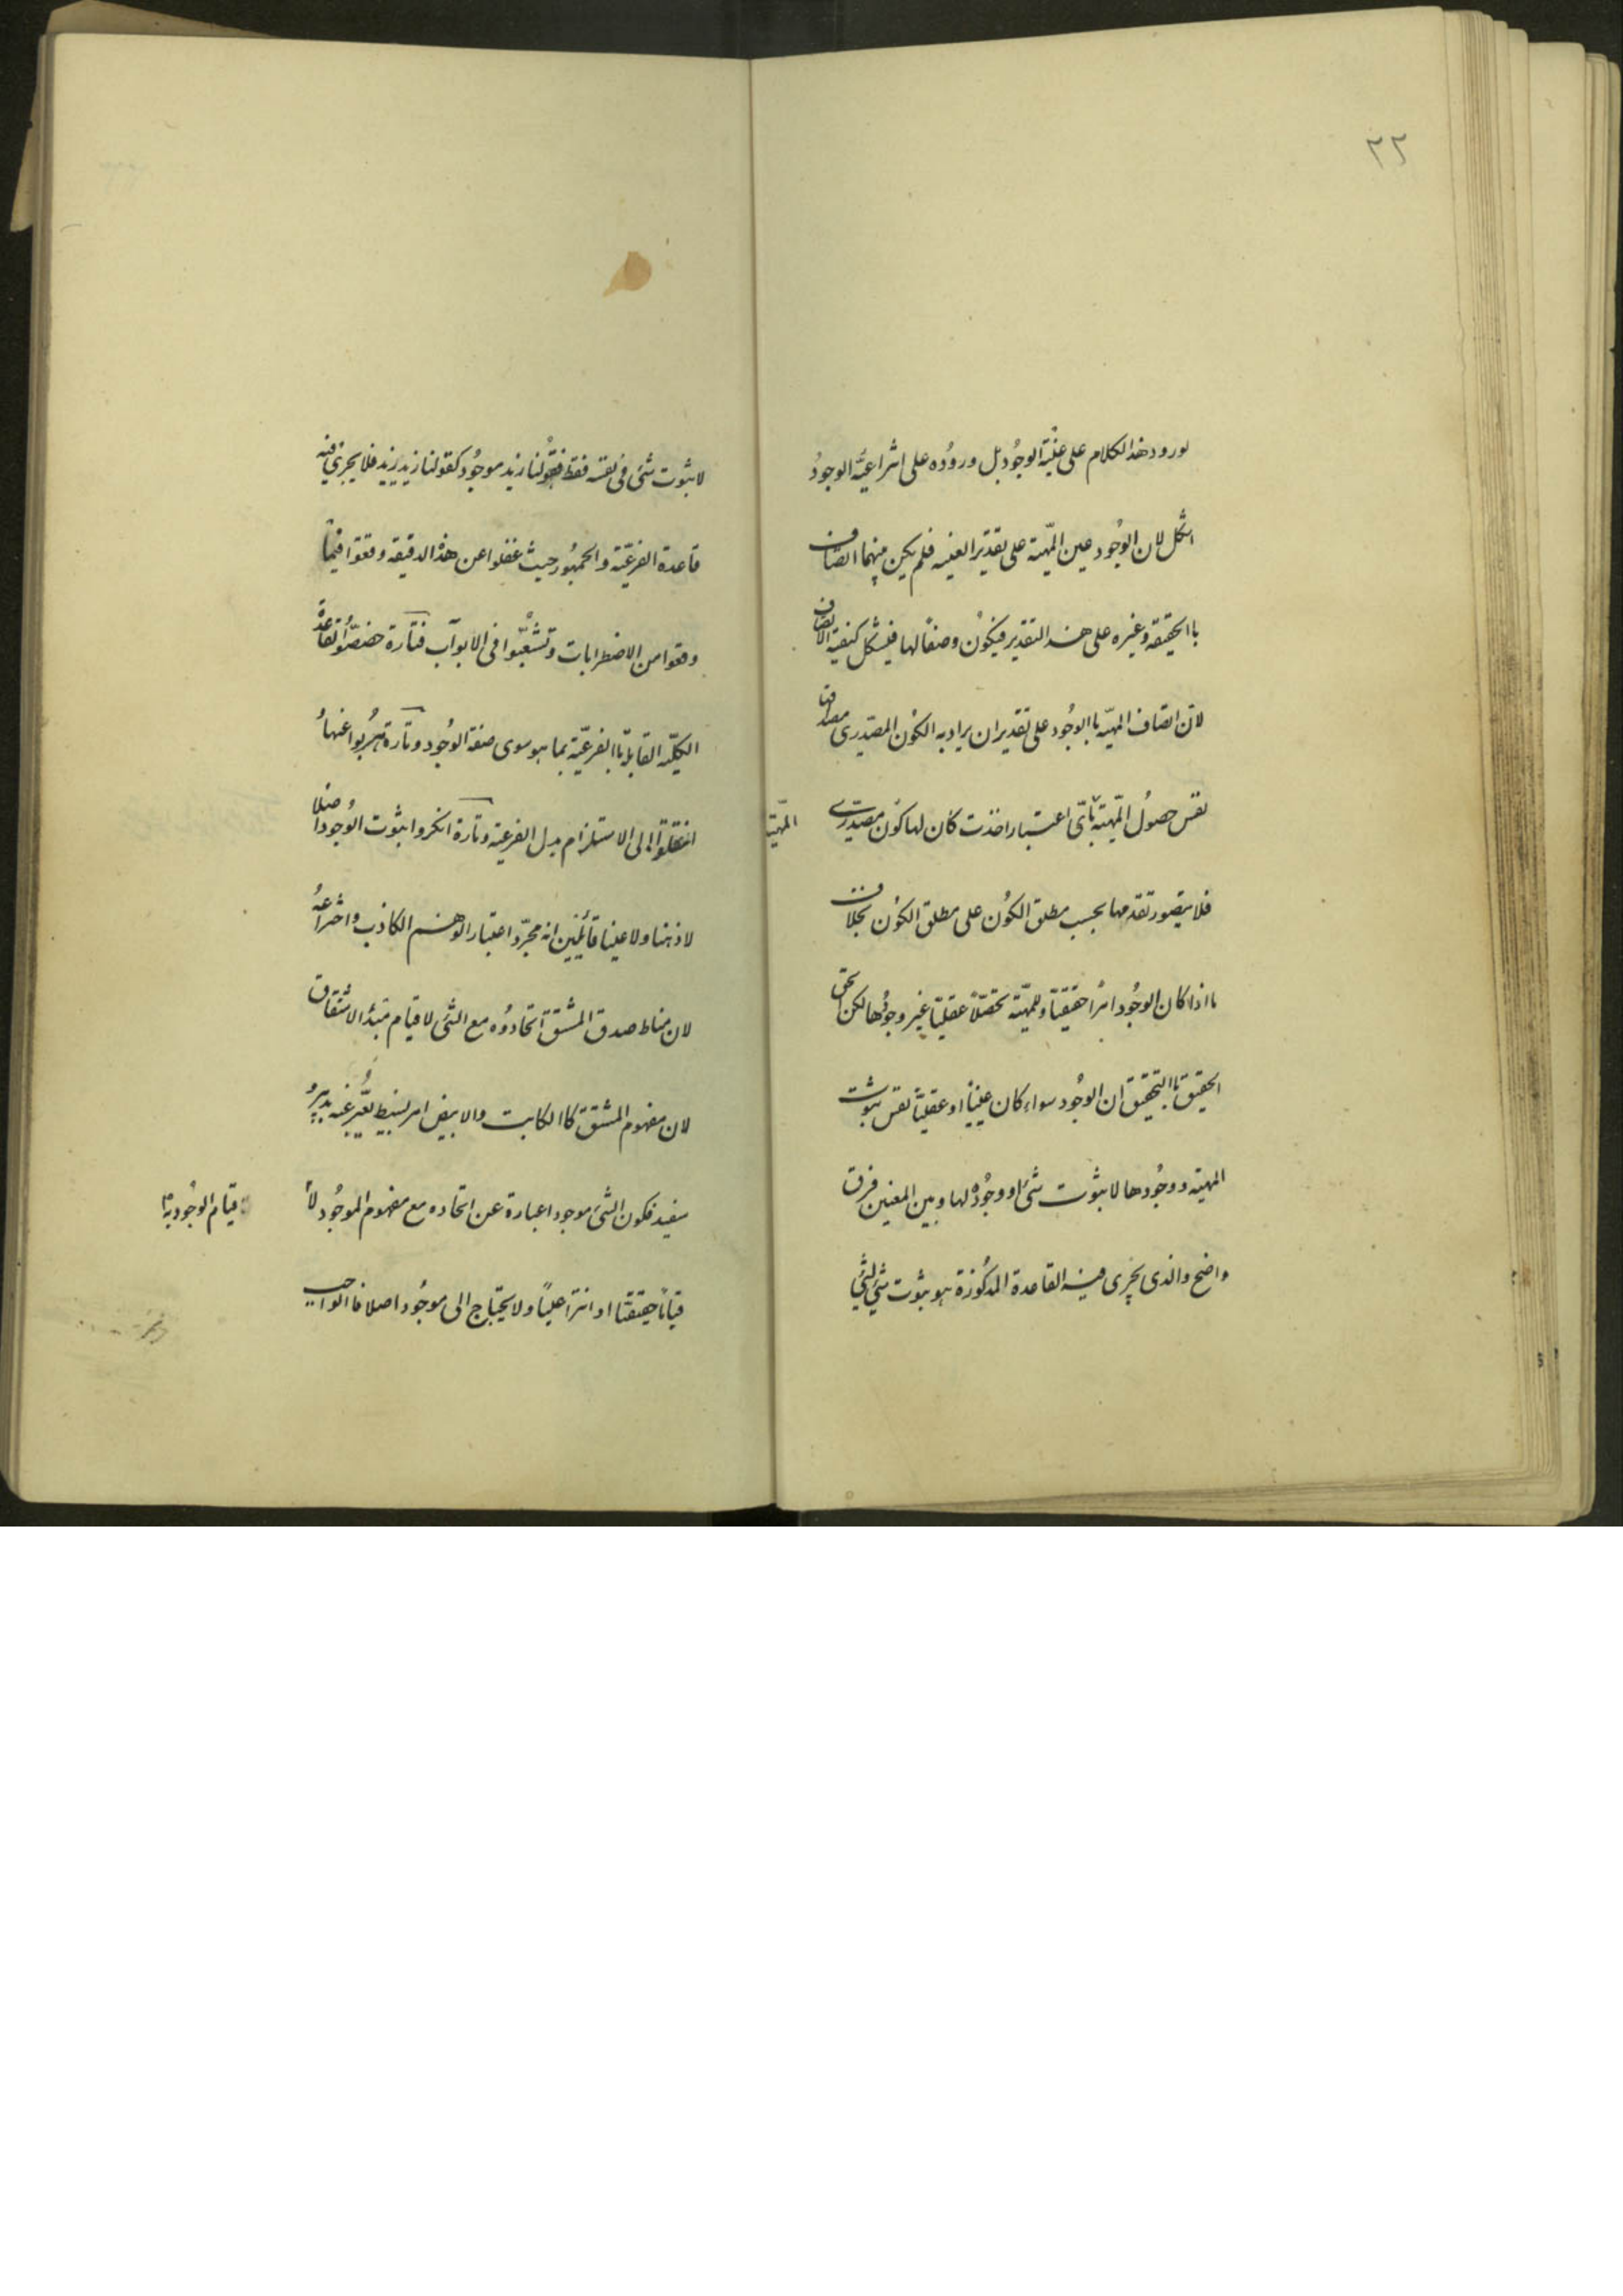 ٢٢
لورود هذا الكلام على عينية الوجود بل وروده على انتزاعية الوجود
اشكل لان الوجود عين المهية على تقدير العينية فلم يكن بينهما اتصاف
باالحقيقه وغيره على هذا التقدير فيكون وصفاً لها فيشكل كيفية الاتصاف
لان اتصاف المهيّه باالوجود على تقدير ان يراد به الكون المصدرى مصداقه
نفس حصول المهية
المهية باىّ اعتبار اخذت كان لها كون مصدرى
فلا يتصور تقدمها بحسب مطلق الكون على مطلق الكون بخلاف
ما اذا كان الوجود امراً حقيقيّا وللمهيّة تحصّلاً عقليّا غير وجودها لكن الحق
الحقيق باالتحقيق ان الوجود سواء كان عينيّاً او عقليّاً نفس ثبوت
المهيّه ووجودها لا ثبوت شئ او وجوده لها وبين المعنيين فرق
واضح والذى يجرى فيه القاعدة المذكورة هو ثبوت شئ لشئ
لا ثبوت شئ فى نفسه فقط فقولنا زيد موجود كقولنا زيد زيد فلا يجرى فيه
قاعدة الفرعيّة والجمهور حيث غفلوا عن هذه الدقيقه وقعوا فيما
وقعوا من الاضطرابات وتشعّبوا فى الابواب فتارة خصّصوا القاعدة
الكليّة القايلة باالفرعيّة بما هو سوى صفة الوجود وتارة هربوا عنها
انتقلوا الى الاستلزام بدل الفرعية وتارة انكروا ثبوت الوجود اصلا
لا ذهنا ولا عينا قائلين انه مجرّد اعتبار الوهم الكاذب واختراعه
لان مناط صدق المشتق اتحاده مع الشئ لا قيام مبدء الاشتقاق
لان مفهوم المشتق كاالكاتب والابيض امر بسيط يعبّر عنه بدبير
سفيد فكون الشئ موجودا عبارة عن اتحاده مع مفهوم الموجود لا
قيام الوجود به
قياماً حقيقيّا او انتزاعيّاً ولا يحتاج الى موجود اصلا فاالواجب